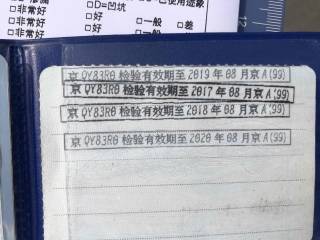 D=凹坑
□非常好 □好 □一般 □差
□非常好 □好 □一般
□非常好
12
京 QY83R0 检验有效期至 2019 年 08 月京 A(99)
京 QY83R0 检验有效期至 2017 年 08 月京 A(99)
京 QY83R0 检验有效期至 2018 年 08 月京 A(99)
京 QY83R0 检验有效期至 2020 年 08 月京 A(99)